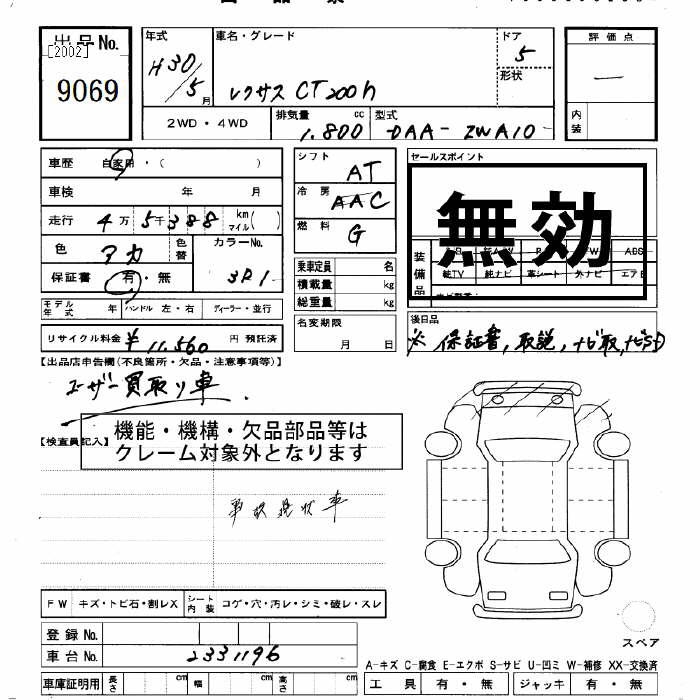 出品No.
[2002]
9069
年式
H30/5月
車名・グレード
レクサス CT200h
ドア
5
形状
評価点
—
内装
2WD・4WD
排気量
1.800 cc
型式
DAA-ZWA10-
車歴 自家用・( )
車検 年 月
走行 4万5千388 km マイル( )
色 アカ
色替
カラーNo.
3R1
保証書 有・無
モデル年式 年
ハンドル 左・右
ディーラー・並行
リサイクル料金 ¥11,560 円 預託済
シフト
AT
冷房
AAC
燃料
G
乗車定員 名
積載量 kg
総重量 kg
名変期限
月 日
セールスポイント
無効
装備品
ABS
純TV 純ナビ 革シート 外ナビ エアB
後日品
※ 保証書, 取説, ナビ取, ナビSD
【出品店申告欄(不良箇所・欠品・注意事項等)】
ユーザー買取り車
【検査員記入】
機能・機構・欠品部品等は
クレーム対象外となります
事故現状車
FW キズ・トビ石・割レX
シート内装 コゲ・穴・汚レ・シミ・破レ・スレ
登録No.
車台No. 2331196
車庫証明用 長さ cm 幅 cm 高さ cm
スペア
A-キズ C-腐食 E-エクボ S-サビ U-凹ミ W-補修 XX-交換済
工具 有・無 ジャッキ 有・無